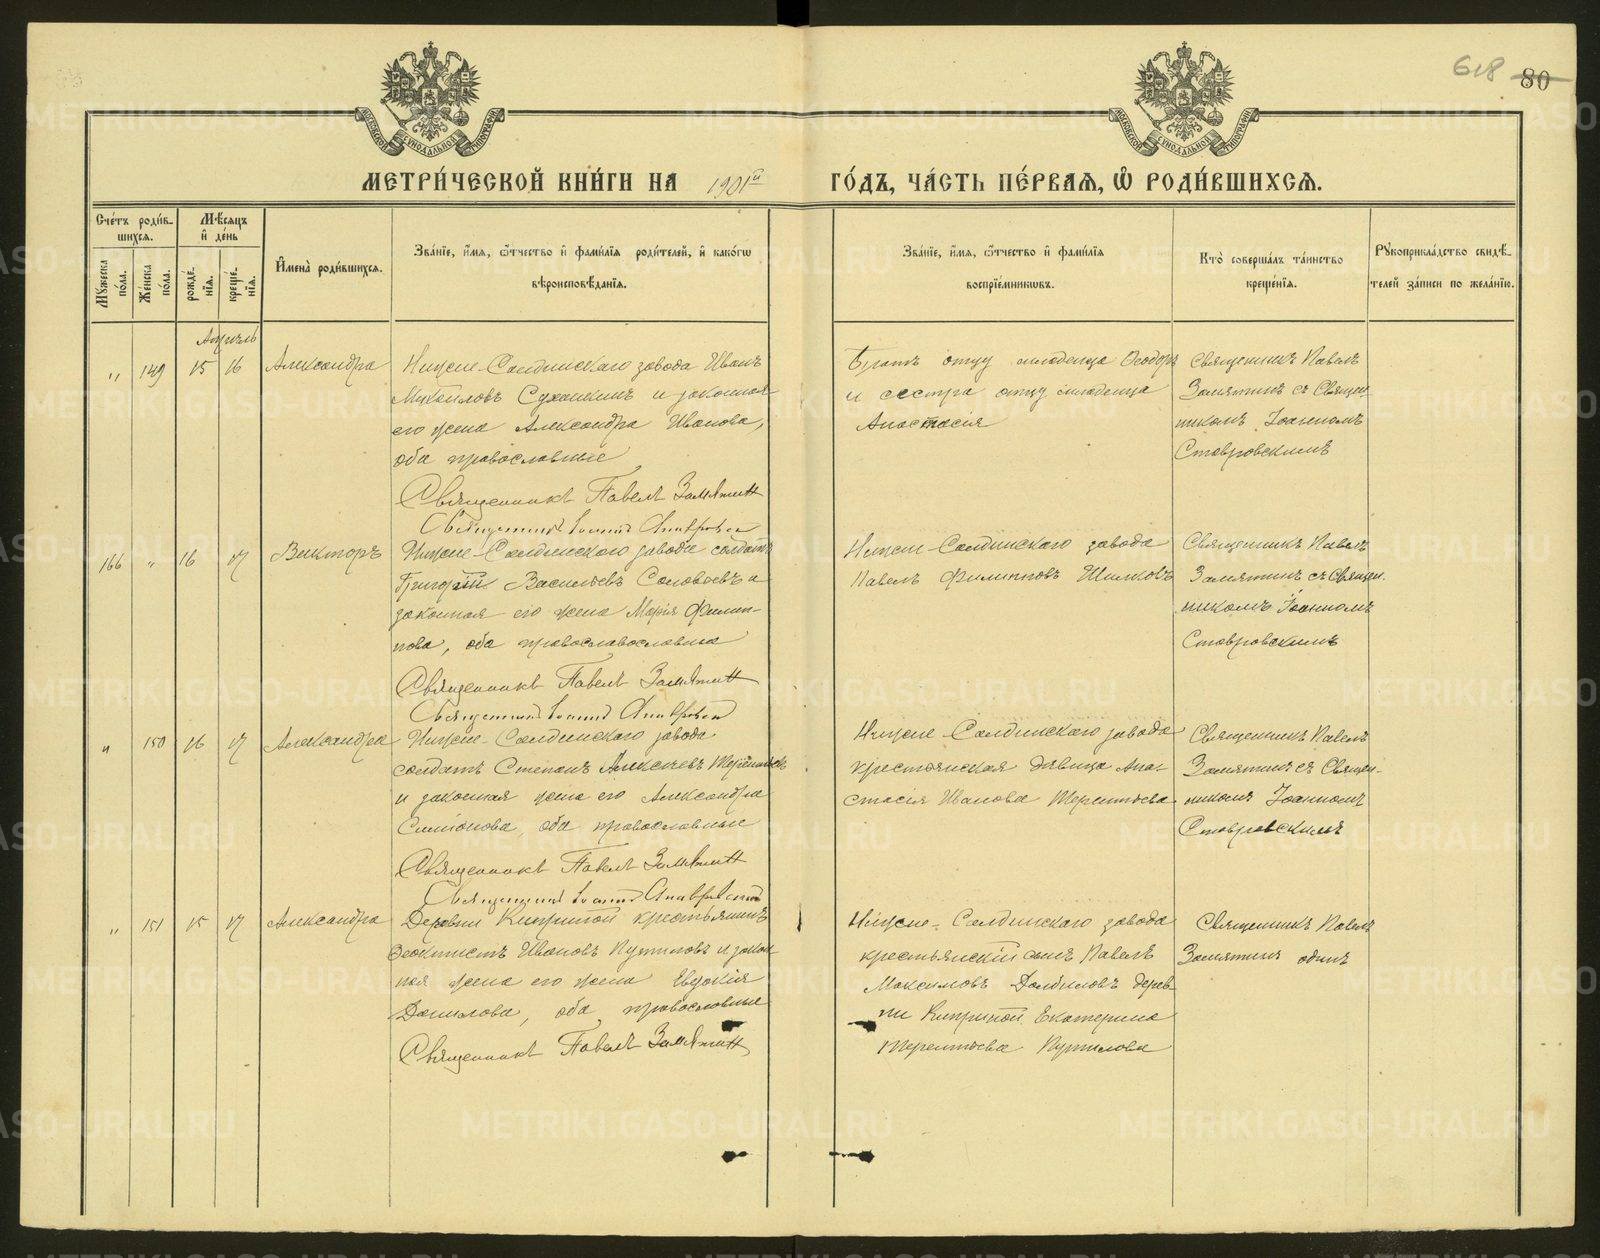 618 80
МОСКОВСКОЙ СѴНОДАЛЬНОЙ ТИПОГРАФІИ
МОСКОВСКОЙ СѴНОДАЛЬНОЙ ТИПОГРАФІИ
МЕТРИ́ЧЕСКОЙ КНИ́ГИ НА 1901й ГО́ДЪ, ЧА́СТЬ ПЕ́РВАѦ, Ѽ РОДИ́ВШИХСѦ.
Сче́тъ роди́вшихсѧ.
Мꙋ́жеска по́ла.
Же́нска по́ла.
Мѣ́сѧцъ и҆ де́нь
рожде́нїѧ.
креще́нїѧ.
И҆мена̀ роди́вшихсѧ.
Зва́нїе, и҆́мѧ, ѻ҆́тчество и҆ фами́лїѧ роди́телей, и҆ како́гѡ
вѣроисповѣ́данїѧ.
Зва́нїе, и҆́мѧ, ѻ҆́тчество и҆ фами́лїѧ
воспрїе́мникѡвъ.
Кто̀ соверша́лъ та́инство
креще́нїѧ.
Рꙋкоприкла́дство свидѣ́-
телей за́писи по жела́нїю.
Апрѣль
" 149 15 16 Александра
Нижне-Салдинскаго завода Иванъ
Михаиловъ Суханкинъ и законная
его жена Александра Иванова,
оба православные
Священникъ Павелъ Замятин
Священникъ Іоаннъ Ставровскій
Братъ отцу младенца Ѳеодоръ
и сестра отцу младенца
Анастасія
Священникъ Павелъ
Замятинъ съ Священ-
никомъ Іоанномъ
Ставровскимъ
166 " 16 17 Викторъ
Нижне-Салдинскаго завода солдатъ
Григорій Васильевъ Соловьевъ и
законная его жена Марія Филип-
пова, оба православославные
Священникъ Павелъ Замятин
Священникъ Іоаннъ Ставровскій
Нижне-Салдинскаго завода
Павелъ Филипповъ Шилковъ
Священникъ Павелъ
Замятинъ съ Священ-
никомъ Іоанномъ
Ставровскимъ
" 150 16 17 Александра
Нижне-Салдинскаго завода
солдатъ Степанъ Алексѣевъ Терентьевъ
и законная жена его Александра
Симеонова, оба православные
Священникъ Павелъ Замятин
Священникъ Іоаннъ Ставровскій
Нижне-Салдинскаго завода
крестьянская дѣвица Ана-
стасія Иванова Терентьева
Священникъ Павелъ
Замятинъ съ Священ-
никомъ Іоанномъ
Ставровскимъ
" 151 15 17 Александра
Деревни Киприной крестьянинъ
Ѳеоктистъ Ивановъ Путиловъ и закон-
ная жена его жена Евдокія
Данилова, оба православные
Священникъ Павелъ Замятин
Нижне-Салдинскаго завода
крестьянскій сынъ Павелъ
Максимовъ Долбиловъ дерев-
ни Киприной Екатерина
Терентьева Путилова
Священникъ Павелъ
Замятинъ одинъ
METRIKI.GASO-URAL.RU